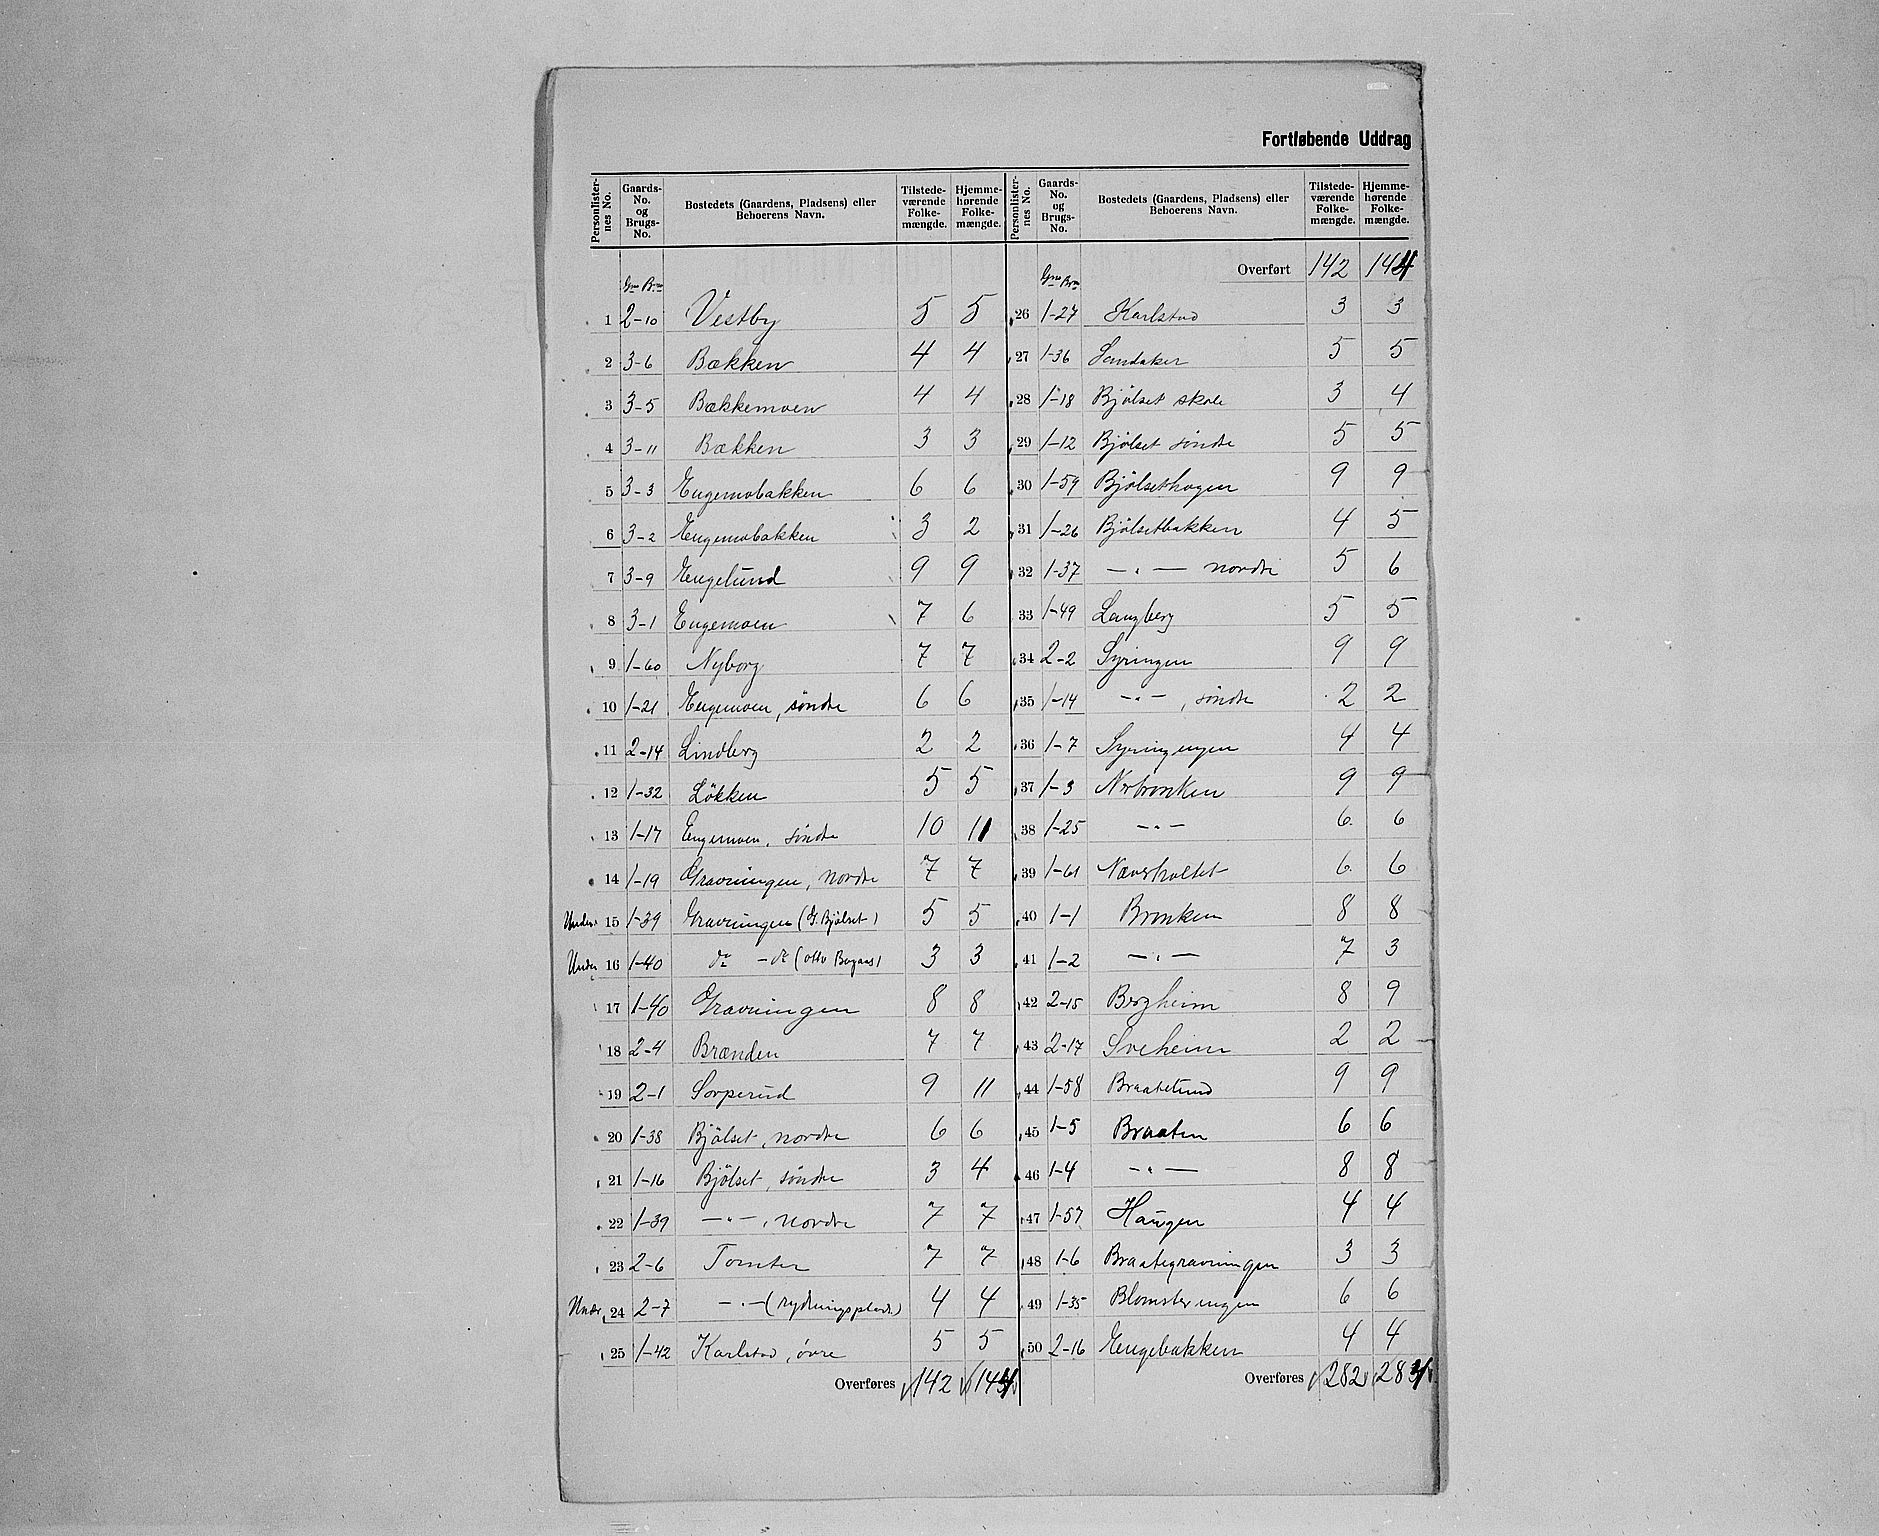 Fortløbende Uddrag
Personlisternes No. Gaards-No. og Brugs-No. Bostedets (Gaardens, Pladsens) eller Beboerens Navn. Tilstedeværende Folkemængde. Hjemmehørende Folkemængde.
Gno Bno
1 2-10 Vestby 5 5
2 3-6 Bækken 4 4
3 3-5 Bækkemoen 4 4
4 3-11 Bækken 3 3
5 3-3 Engemobakken 6 6
6 3-2 Engemobakken 3 2
7 3-9 Engelund 9 9
8 3-1 Engemoen 7 6
9 1-60 Nyborg 7 7
10 1-21 Engemoen, söndre 6 6
11 2-14 Lindberg 2 2
12 1-32 Lökken 5 5
13 1-17 Engemoen, söndre 10 11
14 1-19 Gravningen, nordre 7 7
Under 15 1-39 Gravningen (G. Bjölset) 5 5
Under 16 1-40 do - do (Otto 3 3
17 1-40 Gravningen 8 8
18 2-4 Brænden 7 7
19 2-1 Sorperud 9 11
20 1-38 Bjölset, nordre 6 6
21 1-16 Bjölset, söndre 3 4
22 1-39 — " —, nordre 7 7
23 2-6 Tomter 7 7
24 2-7 — " — (rydningsplads) 4 4
25 1-42 Karlstad, övre 5 5
Overføres 142 144
Personlisternes No. Gaards-No. og Brugs-No. Bostedets (Gaardens, Pladsens) eller Beboerens Navn. Tilstedeværende Folkemængde. Hjemmehørende Folkemængde.
Overført 142 144
Gno Bno
26 1-27 Karlstad 3 3
27 1-36 Sandaker 5 5
28 1-18 Bjölset skole 3 4
29 1-12 Bjölset söndre 5 5
30 1-59 Bjölsethagen 9 9
31 1-26 Bjölsetbakken 4 5
32 1-37 — " — nordre 5 6
33 1-49 Langberg 5 5
34 2-2 Syringen 9 9
35 1-14 — " —, söndre 2 2
36 1-7 Syringengen 4 4
37 1-3 9 9
38 1-25 — " — 6 6
39 1-61 6 6
40 1-1 Bronken 8 8
41 1-2 — " — 7 3
42 2-15 Bergheim 8 9
43 2-17 Sveheim 2 2
44 1-58 Braatelund 9 9
45 1-5 Braaten 6 6
46 1-4 — " — 8 8
47 1-57 Haugen 4 4
48 1-6 Braategravningen 3 3
49 1-35 Blomsterengen 6 6
50 2-16 Engebakken 4 4
Overføres 282 284